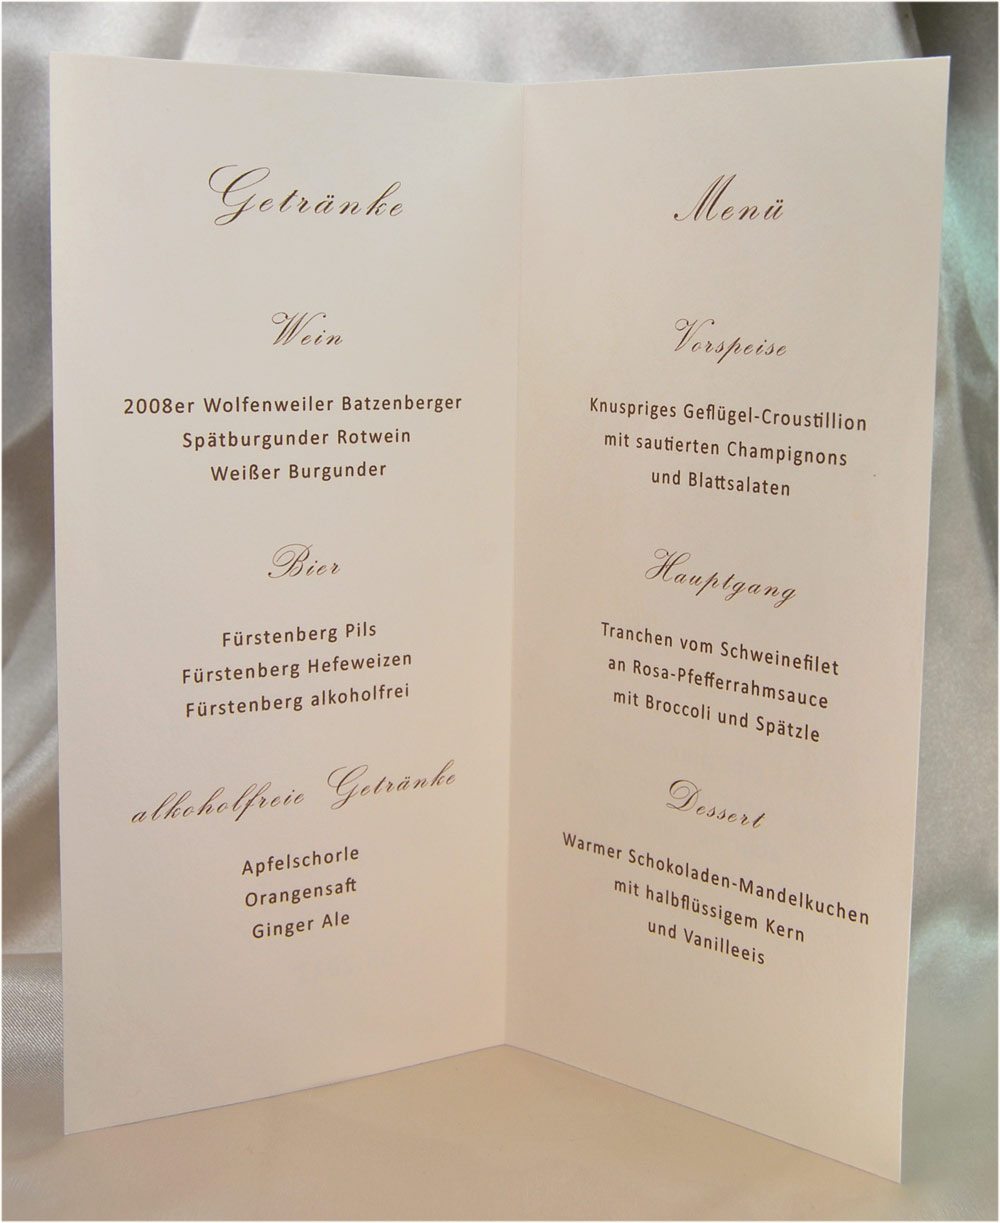 Getränke
Wein
2008er Wolfenweiler Batzenberger
Spätburgunder Rotwein
Weißer Burgunder
Bier
Fürstenberg Pils
Fürstenberg Hefeweizen
Fürstenberg alkoholfrei
alkoholfreie Getränke
Apfelschorle
Orangensaft
Ginger Ale
Menü
Vorspeise
Knuspriges Geflügel-Croustillion
mit sautierten Champignons
und Blattsalaten
Hauptgang
Tranchen vom Schweinefilet
an Rosa-Pfefferrahmsauce
mit Broccoli und Spätzle
Dessert
Warmer Schokoladen-Mandelkuchen
mit halbflüssigem Kern
und Vanilleeis